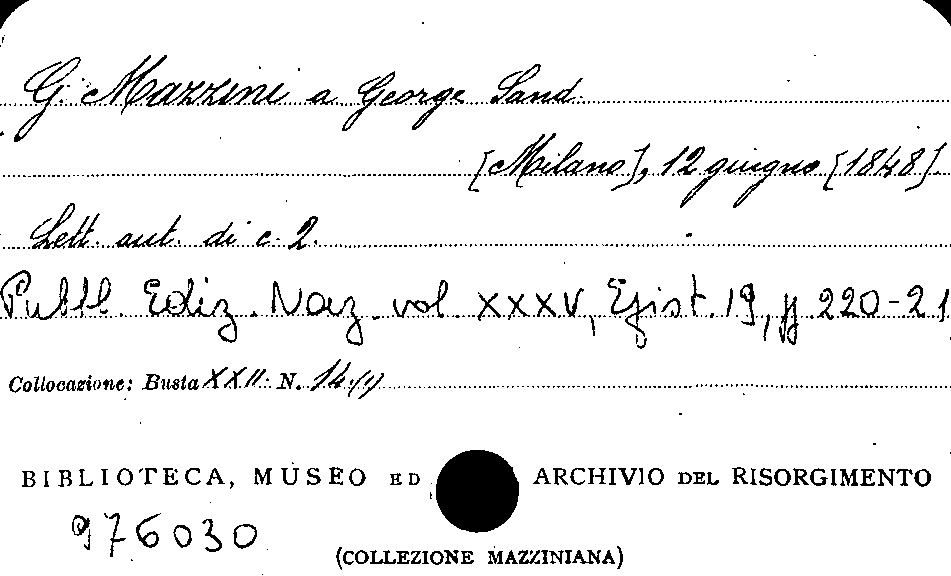 G. Mazzini a George Sand
[Milano], 12 giugno [1848].
Lett. aut. di c. 2.
Pubbl. Ediz. Naz. vol. XXXV, Epist. 19, pp. 220-21
Collocazione: Busta XXII. N. 14 (1)
BIBLIOTECA, MUSEO ED ARCHIVIO DEL RISORGIMENTO
976030
(COLLEZIONE MAZZINIANA)